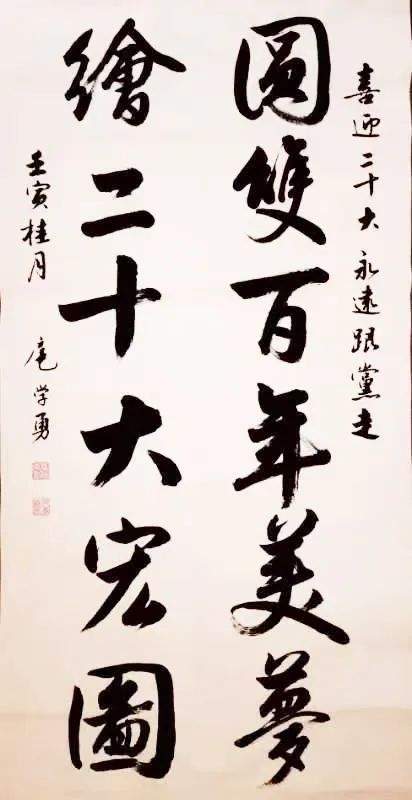 喜迎二十大 永遠跟黨走
圓雙百年美夢
繪二十大宏圖
壬寅桂月 学勇